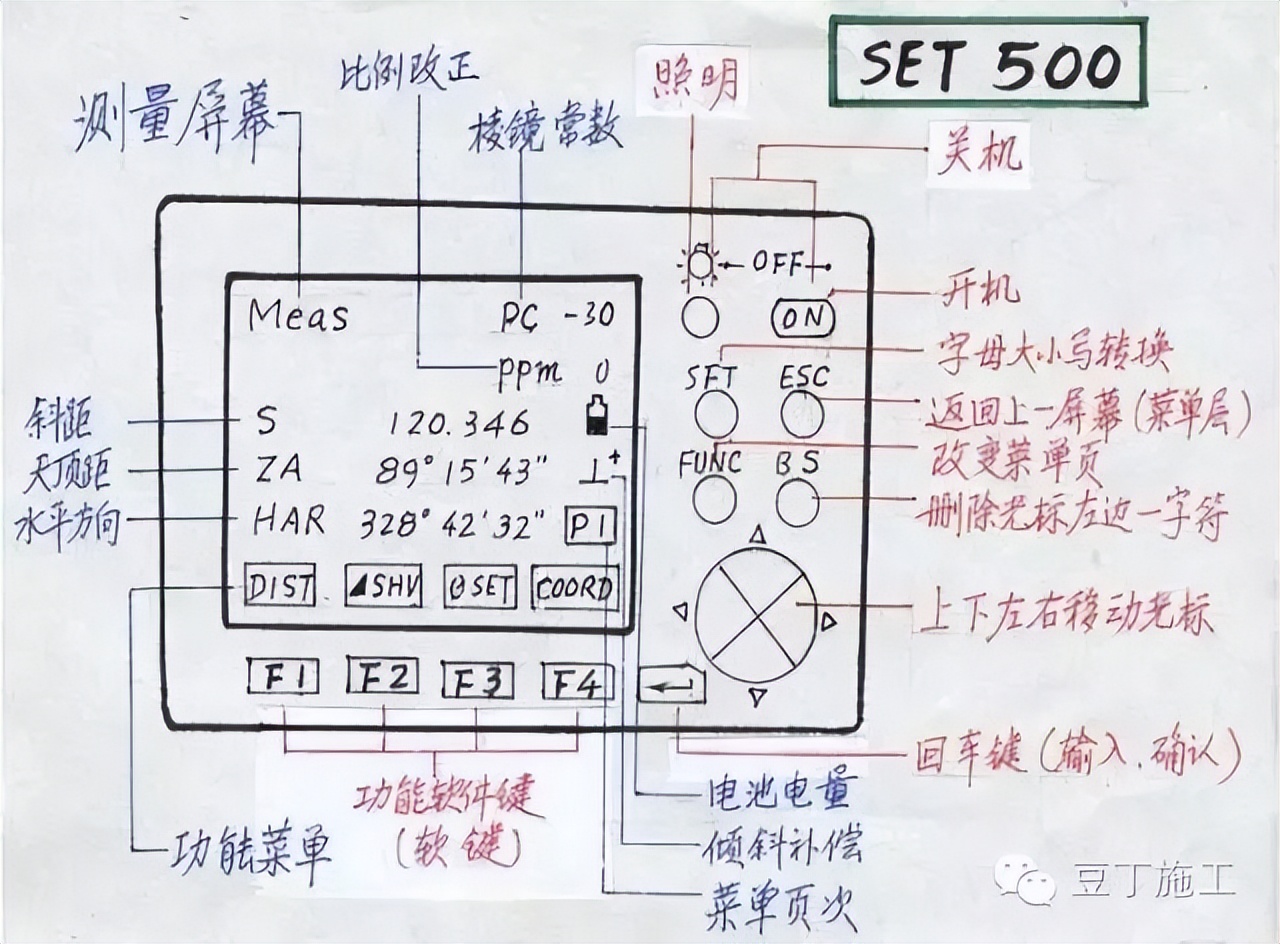 SET 500
比例改正
照明
测量屏幕
棱镜常数
关机
OFF
Meas
PC -30
ON
开机
ppm 0
字母大小写转换
SFT
ESC
斜距
S 120.346
返回上一屏幕(菜单层)
天顶距
ZA 89° 15′ 43″
⊥+
FUNC
BS
改变菜单页
水平方向
HAR 328° 42′ 32″
P1
删除光标左边一字符
DIST
◢SHV
θSET
COORD
上下左右移动光标
F1
F2
F3
F4
回车键(输入、确认)
功能软件键
(软键)
电池电量
功能菜单
倾斜补偿
菜单页次
豆丁施工